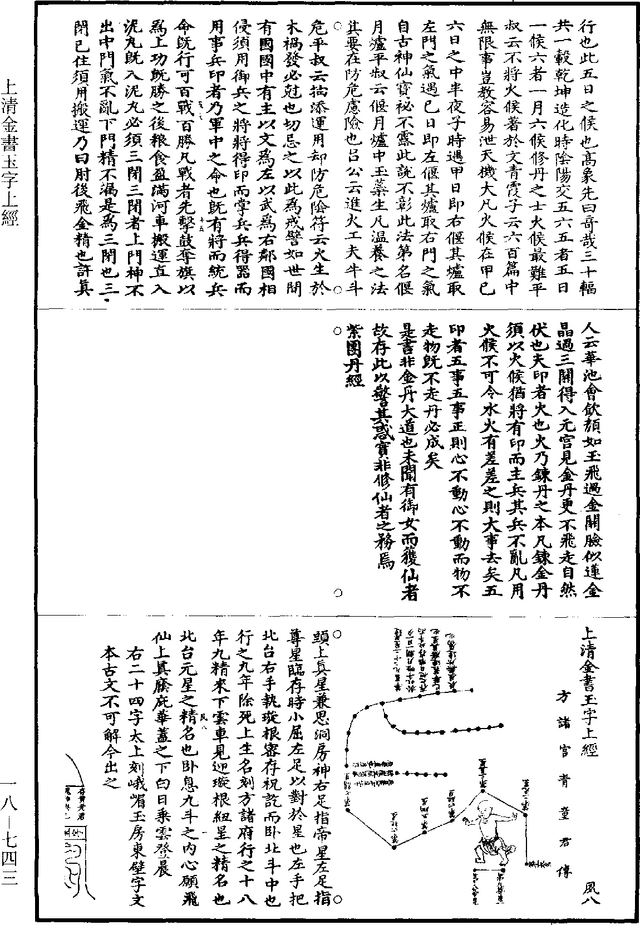 上清金書玉字上經
行也此五日之候也高象先曰奇哉三十輻
共一轂乾坤造化時陰陽交五六五者五日
一候六者一月六候修丹之士火候最難平
叔云不將火候著於文青霞子云六百篇中
無限事豈教容易泄天機大凡火候在甲巳
六日之中半夜子時遇甲日即右偃其爐取
左門之氣遇巳日即左偃其爐取右門之氣
自古神仙寶祕不露此說不彰此法第名偃
月爐平叔云偃月爐中玉蘂生凡溫養之法
其要在防危慮險也呂公云進火工夫牛斗
危平叔云抽添運用却防危陰符云火生於
木禍發必尅也切忌之以此為戒譬如世間
有國國中有主以文為左以武為右鄰國相
侵須用御兵之將將得印而掌兵兵得器而
用事兵印者乃軍中之命也既有將而統兵
命既行可百戰百勝凡戰者先擊鼓奪旗以
為上功既勝之後粮食盈滿河車搬運直入
泥丸既入泥丸必須三閉三閉者上門神不
出中門氣不亂下門精不漏是為三閉也三
閉已住須用搬運乃曰肘後飛金精也許真
人云華池會飲顏如玉飛過金關臉似蓮金
晶過三關得入元宮見金丹更不飛走自然
伏也夫印者火也火乃鍊丹之本凡鍊金丹
須以火候猶將有印而主兵其兵不亂凡用
火候不可令水火有差差之則大事去矣五
印者五事五事正則心不動心不動而物不
走物既不走丹必成矣
是書非金丹大道也未聞有御女而獲仙者
故存此以警其惑實非修仙者之務焉
紫團丹經
上清金書玉字上經
方諸宮青童君傳
風八
頭上真星兼思洞房神右足指帝星左足指
尊星臨存時小屈左足以對於星也左手把
北台右手執璇根密存祝說而卧北斗中也
行之九年除死上生名刻方諸府行之十八
年九精來下雲車見迎璇根紐星之精名也
北台元星之精名也卧息九斗之內心願飛
仙上真蔭庇華蓋之下白日乘雲登晨
右二十四字太上刻峨嵋玉房東壁字文
本古文不可解今出之
一八—七四三